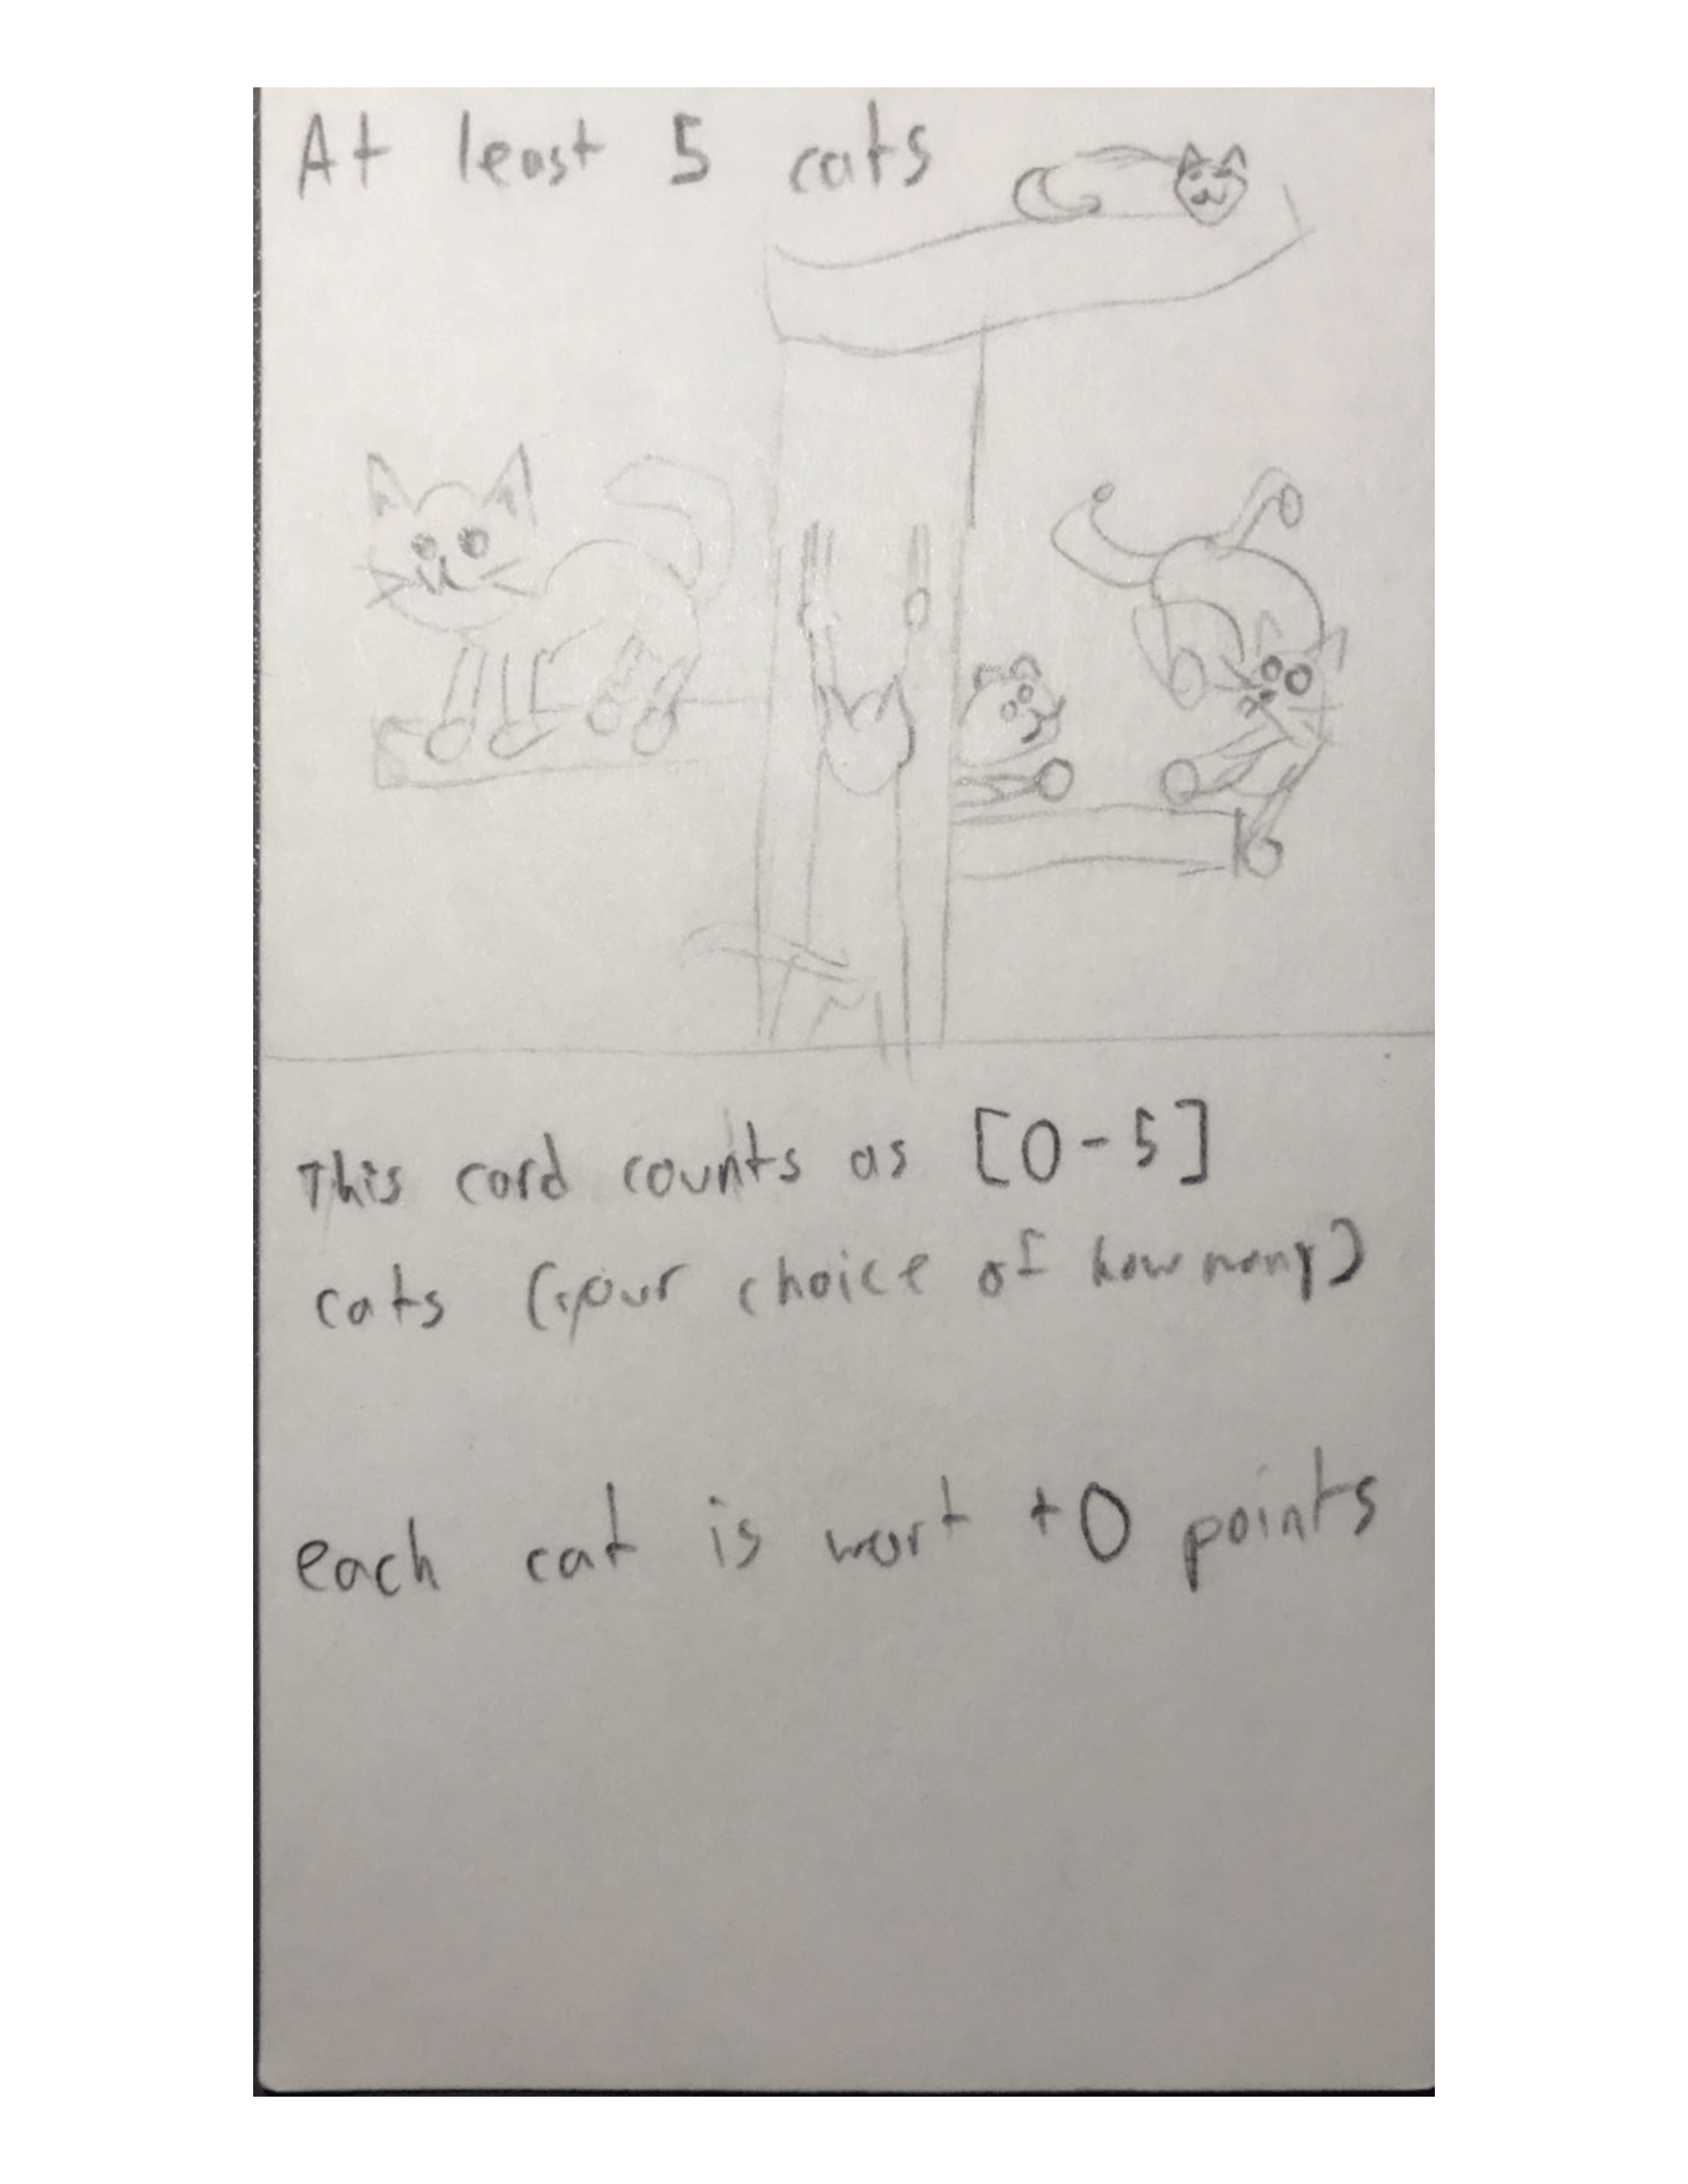 At least 5 cats
This card counts as [0-5]
cats (your choice of how many)
each cat is wort +0 points